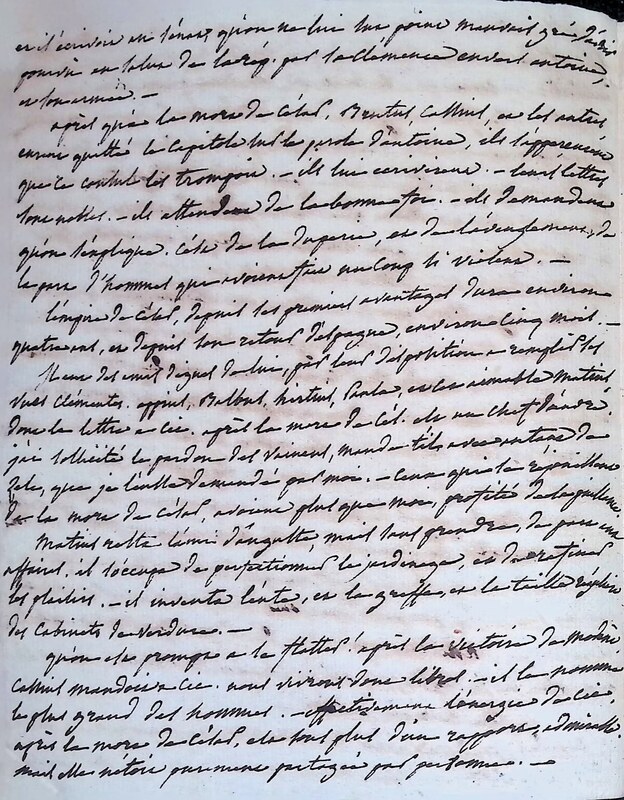 et il écrivoit au sénat, qu'on ne lui sut point mauvais gré d'avoir
pourvu au salut de la rép. par la clémence envers antoine,
et son armée. —
après que la mort de César, Brutus, Cassius, et les autres
eurent quitté le capitole sur la parole d'antoine, ils s'apperçurent
que ce consul les trompoit. — ils lui écrivirent. — leurs lettres
sont nobles. — ils attendent de la bonne foi. — ils demandent
qu'on s'explique. C'est de la duperie, et de l'aveuglement, de
la part d'hommes qui avoient fait un coup si violent. —
l'empire de César, depuis ses premiers avantages dura environ
quatre ans, et depuis son retour d'espagne, environ cinq mois. —
il eut des amis dignes de lui, par leurs dispositions a remplir ses
vues clémentes. oppius, Balbus, hirtius, Pansa, et cet aimable Matius
dont la lettre a Cic. après la mort de Cés. est un chef d'œuvre.
j'ai sollicité le pardon des vaincus, mande t'il, avec autant de
zele, que je l'eusse demandé pour moi. — Ceux qui se réjouissent
de la mort de César, avoient plus que moi, profité de sa puissance.
Matius resta l'ami d'auguste, mais sans prendre de part aux
affaires. il s'occupa de perfectionner le jardinage, et de rafiner
les plaisirs. — il inventa l'ente, et la greffe, et la taille régulière
des cabinets de verdure. —
qu'on est prompt a se flatter! après la victoire de modène
Cassius mandoit a Cic. nous vivrons donc libres. — il le nomme
le plus grand des hommes. — effectivement l'énergie de Cic.
après la mort de César, est sous plus d'un rapport, admirable.
mais elle n'étoit purement partagée par personne. —